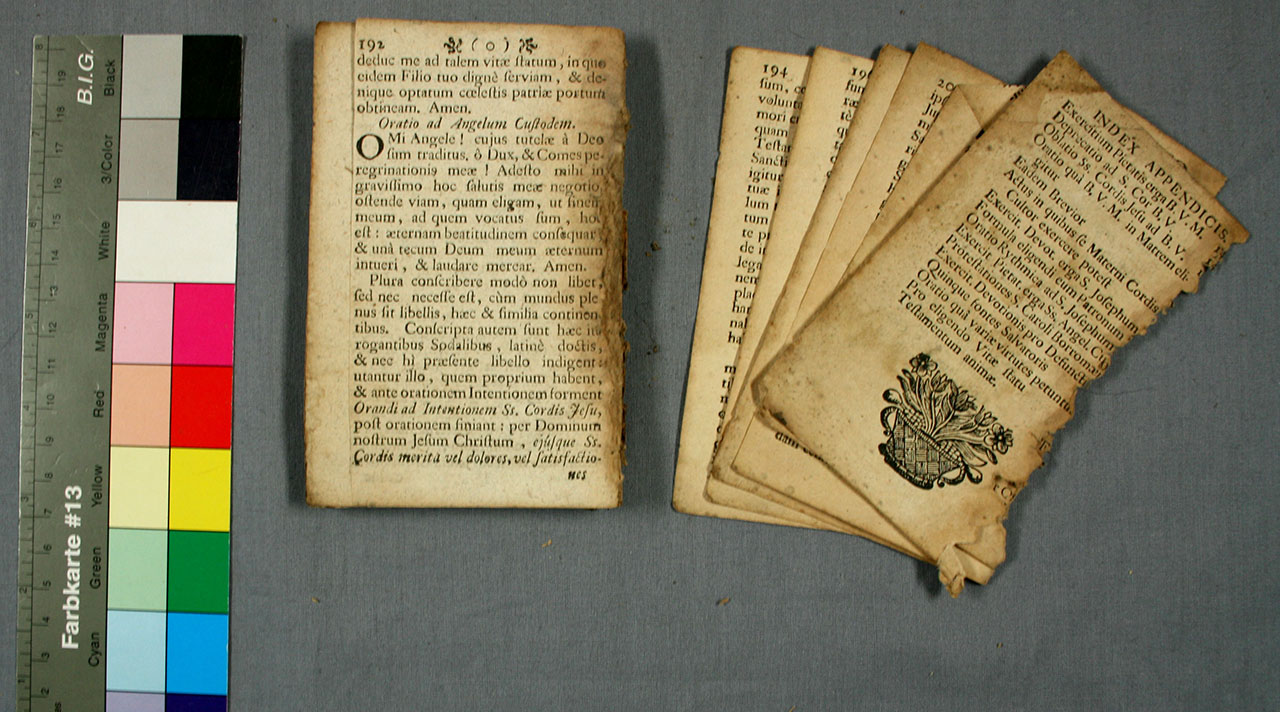 B.I.G.
Farbkarte #13
Black
3/Color
White
Magenta
Red
Yellow
Green
Cyan
192 ( o )
deduc me ad talem vitæ ſtatum, in quo
eidem Filio tuo dignè ſerviam, & de-
nique optatum cœleſtis patriæ portum
obtineam. Amen.
Oratio ad Angelum Cuſtodem.
O Mi Angele! cujus tutelæ à Deo
ſum traditus, ò Dux, & Comes pe-
regrinationis meæ! Adeſto mihi in
graviſſimo hoc ſalutis meæ negotio,
oſtende viam, quam eligam, ut finem
meum, ad quem vocatus ſum, hoc
eſt: æternam beatitudinem conſequar
& unà tecum Deum meum æternum
intueri, & laudare merear. Amen.
Plura conſcribere modò non liber,
ſed nec neceſſe eſt, cùm mundus ple-
nus ſit libellis, hæc & ſimilia continen-
tibus. Conſcripta autem ſunt hæc in-
rogantibus Sodalibus, latinè doctis,
& nec hì præſente libello indigent:
utantur illo, quem proprium habent,
& ante orationem Intentionem forment
Orandi ad Intentionem Ss. Cordis Jeſu,
poſt orationem finiant: per Dominum
noſtrum Jeſum Chriſtum, ejúſque Ss.
Cordis merita vel dolores, vel ſatisfactio-
nes
194
ſum, 
volunt
mori
quam
Teſta
Sancti
igitur
tuæ
lum
tum
te
de
lega
nem
plac
har
nal
ha
INDEX APPENDICIS.
Exercitium Pietatis erga B. V. M.
Deprecatio ad S. Cor B. V.
Oblatio Ss. Cordis Jeſu ad B. V.
Oratio quâ B. V. M. in Matrem eli-
gitur
Eadem Brevior
Actus in quibus ſe Materni Cordis
Cultor exercere poteſt
Exercit. Devot. erga S. Joſephum
Formula eligendi eum Patronum
Oratio Rythmica ad S. Joſephum
Exercit. Pietat. erga Ss. Angel.
Proteſtationes S. Caroli Borromæ
Exercit. Devotionis pro Defunct
Quinque fontes Salvatoris
Oratio quâ variæ virtutes petuntur
Pro eligendo Vitæ ſtatu
Teſtamentum animæ.